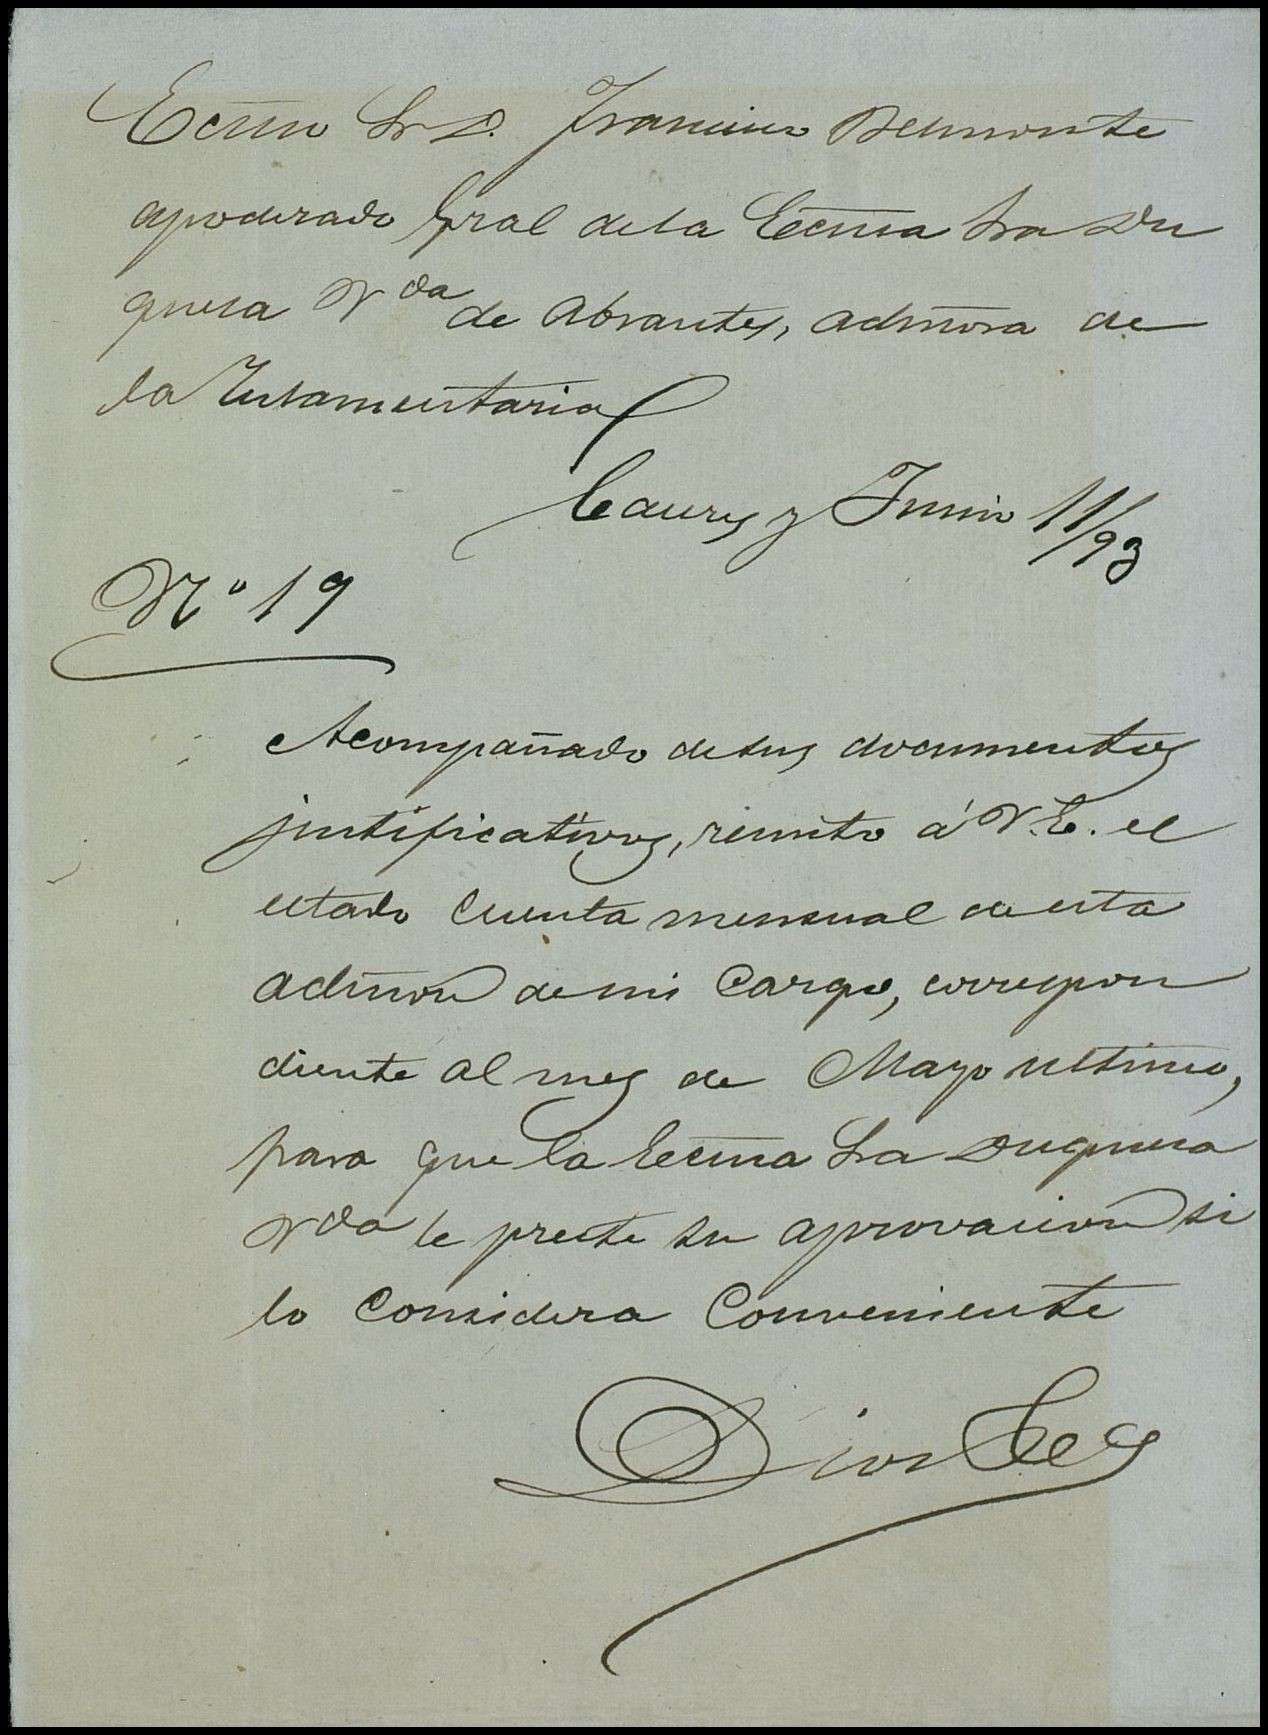 Ecmo Sr D. Francisco Belmonte
apoderado Gral de la Ecma Sra Du
quesa Vda de Abrantes, admora de
la Testamentaria
Caceres y Junio 11/93
No 19
Acompañado de sus documentos
justificativos, remito á V.E. el
estado cuenta mensual de esta
admon de mi cargo, correspon
diente al mes de Mayo ultimo,
para que la Ecma Sra Duquesa
Vda le preste su aprovacion si
lo considera conveniente
Dios